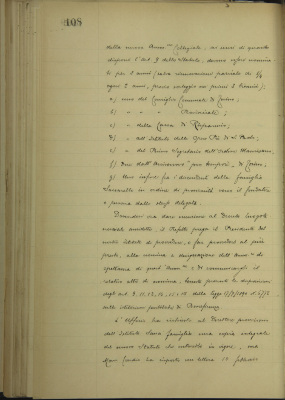 108
della nuova Amm.ne Collegiale. Ai sensi di quanto
dispone l'art. 9 dello Statuto, devono essere nomina-
ti per 8 anni (salvo rinnovazione parziale di 1/4
ogni 2 anni, previo sorteggio nei primi 3 bienni):
a) uno dal Consiglio Comunale di Torino;
b) " " " Provinciale;
c) " dalla Cassa di Risparmio;
d) " dall'Istituto delle Opere Pie di S. Paolo;
e) " dal Primo Segretario dell'Ordine Mauriziano;
f) due dall'Arcivescovo pro tempore di Torino;
g) uno infine fra i discendenti della famiglia
in ordine di prossimità verso il fondatore
e persona dallo stesso delegata.
Dovendosi ora dare esecuzione al Decreto
anzidetto, il Prefetto prega il Presidente del
di provvedere, e far provvedere al più
presto, alla nomina e designazione dell'Amm.re di
spettanza di quest'Amm.ne e di comunicargli il
relativo atto di nomina, tenute presenti le disposizioni
degli art. 9. 11. 12. 13. 14 e 15 della legge 17/7/1890 N. 6972
sulle istituzioni pubbliche di Beneficenza.
L'Ufficio ha richiesto al Direttore provvisorio
dell'Istituto Sacra Famiglia una copia integrale
del nuovo Statuto
ha risposto con lettera 13 febbraio